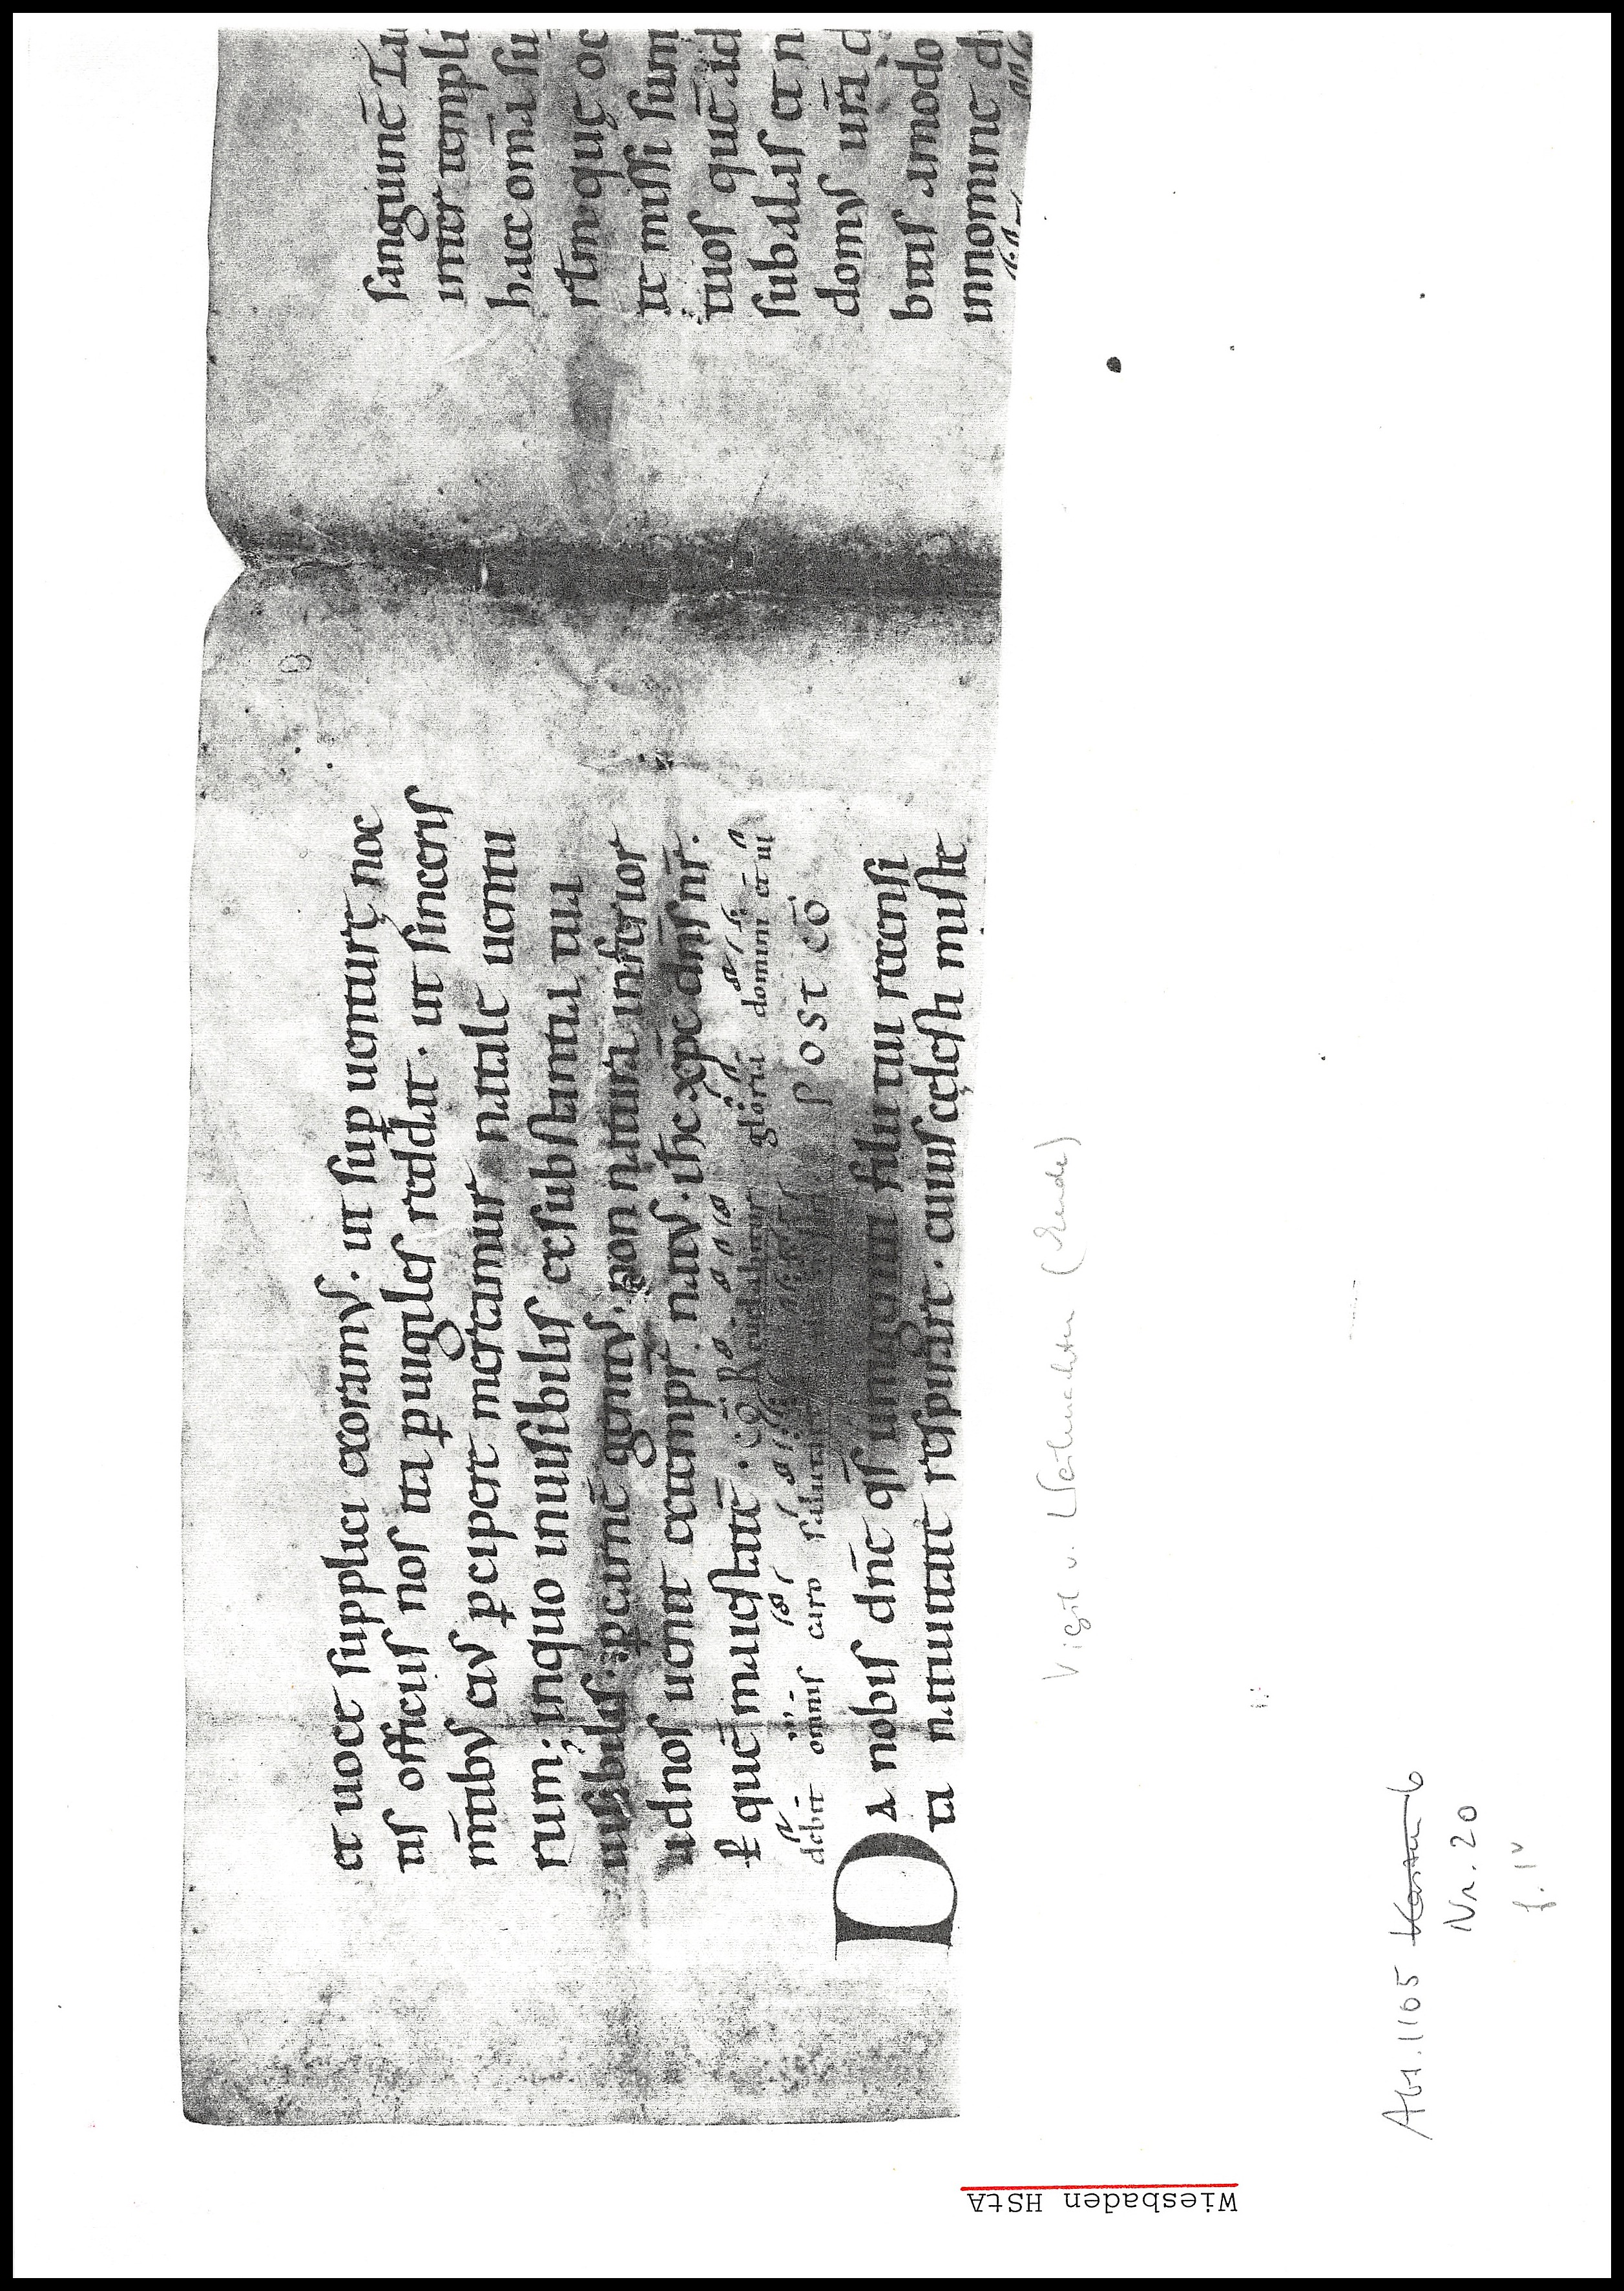 et uoce supplici exoramus. ut sup uenturę noc
tis officiis nos ita puigiles reddat. ut sinceris
mtibus eius pcipere mereamur natale uentu
rum; inquo inuisibilis exsubstantia tua
uisibilis pcarnē genitus. non natura inferior
adnos uenit extempr natus. ihc xpc dns nr.
Pquē maiestatē. cō Reuelabitur gloria domini et ui
debit omnis caro salutare
POST CŌ
Da nobis dnē qs unigeniti filii tui recensi
ta natiuitate respirare. cuius cęlesti miste
sanguinē
inter templi
haec omia su
rlmquę oc
te missi sunt
tuos quē ad
sub alis et n
domus ura d
bitis amodo
innomine d
Vigil v. Weihnachten (Ende)
Abt. 1105 Kasten 6
Nr. 20
f. 1v
Wiesbaden HStA